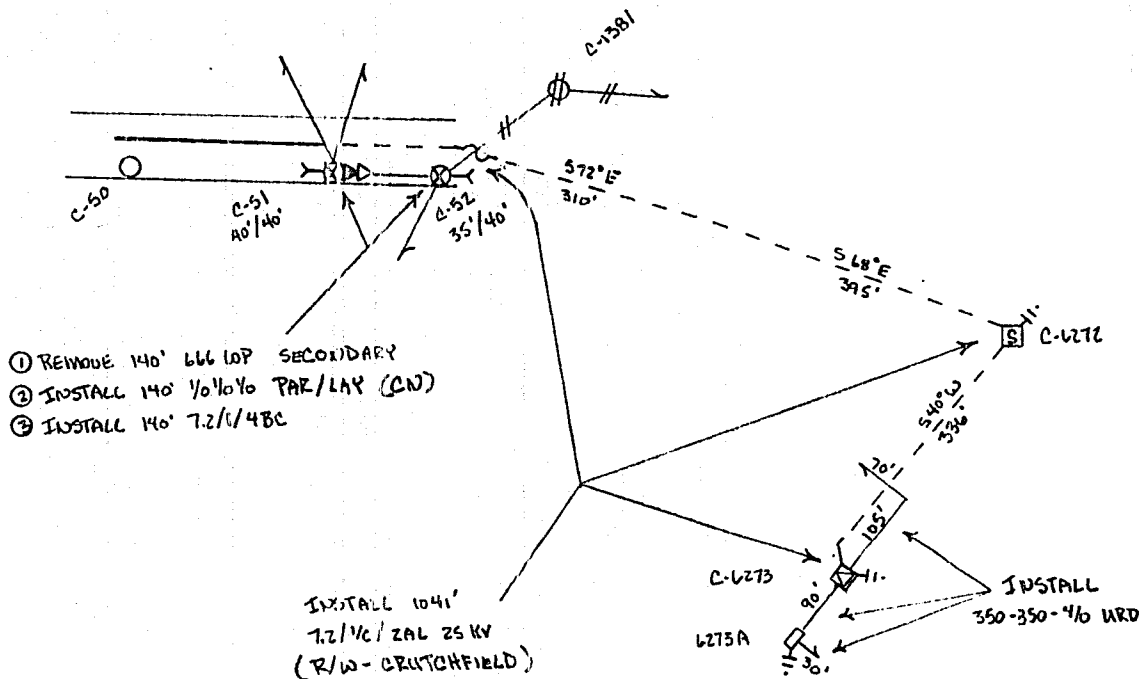 C-1381
C-50
C-51
40'/40'
C-52
35'/40'
S72°E
310'
S68°E
395'
S
C-6272
① REMOVE 140' 666 LOP SECONDARY
② INSTALL 140' 1/0 1/0 1/0 PAR/LAY (CN)
③ INSTALL 140' 7.2/1/4BC
S40°W
336'
70'
105'
C-6273
90'
6273A
30'
INSTALL
350-350-4/0 URD
INSTALL 1041'
7.2/1/C/2AL 25 KV
(R/W-CRUTCHFIELD)